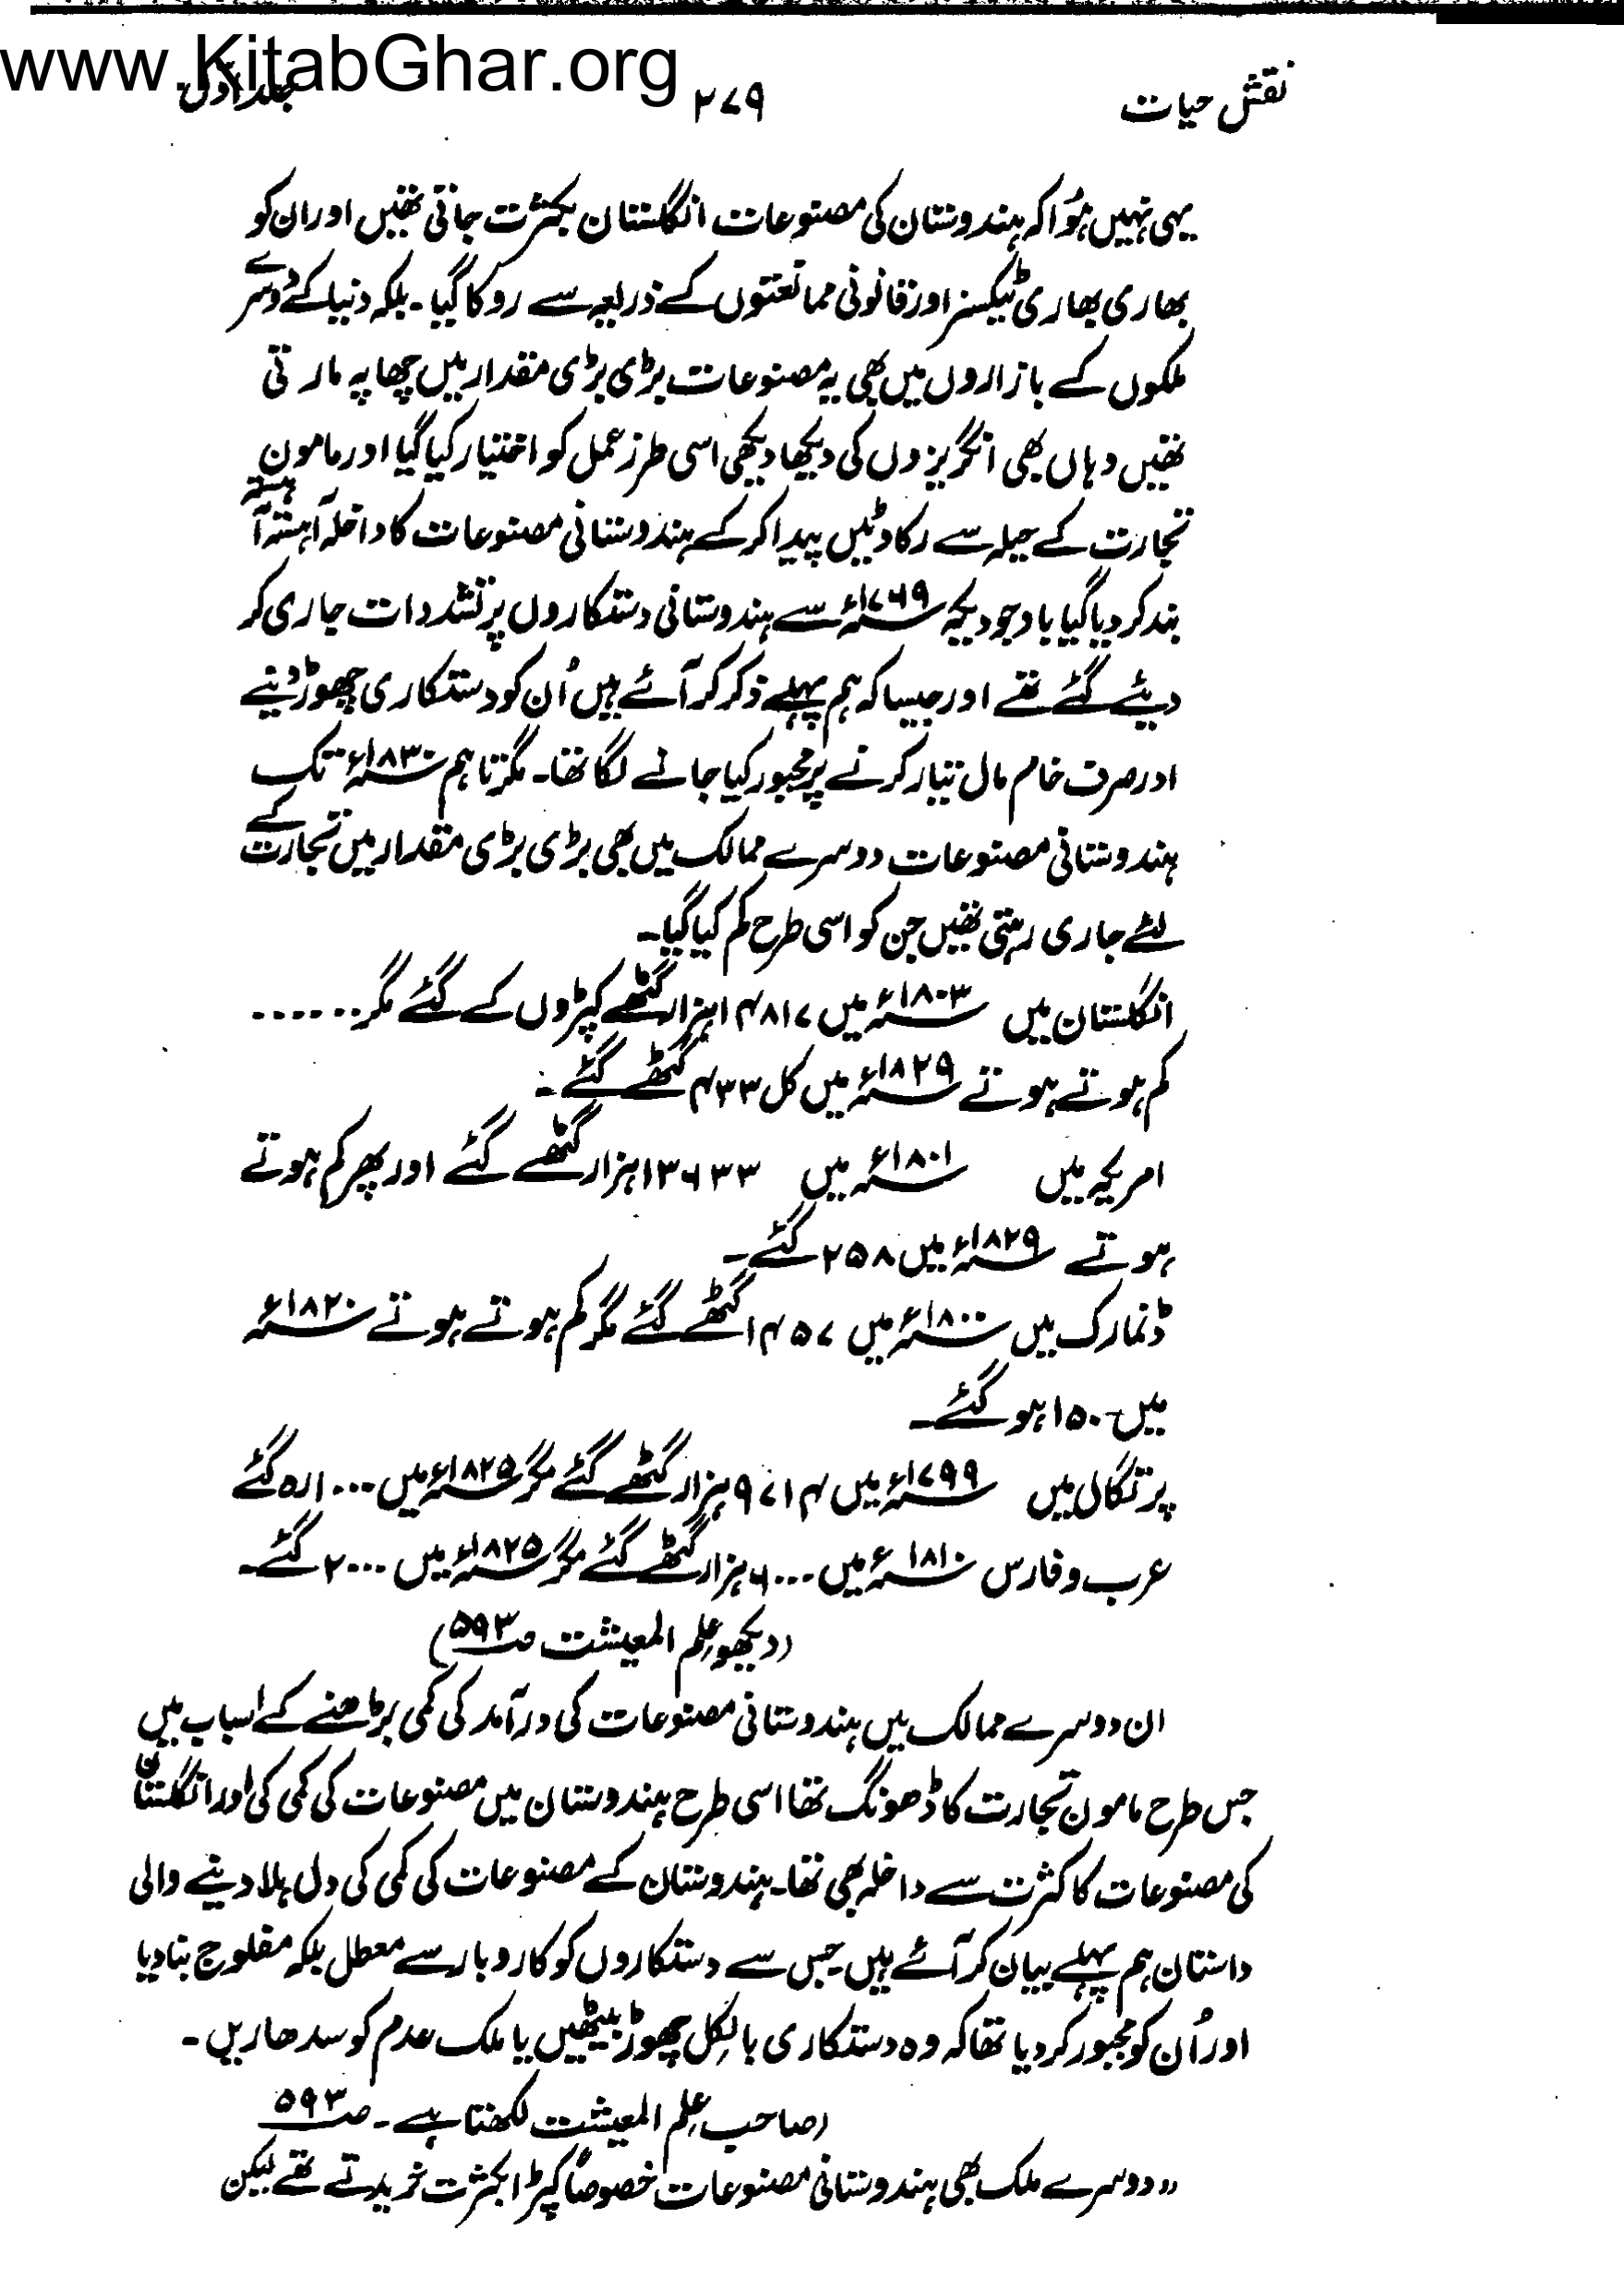 www.KitabGhar.org
نقش حیات ۲۷۹ جلد اوّل
یہی نہیں ہُوا کہ ہندوستان کی مصنوعات انگلستان بکثرت جاتی تھیں اور ان کو
بھاری بھاری ٹیکسز اور قانونی ممانعتوں کے ذریعہ سے روکا گیا۔ بلکہ دنیا کے دوسرے
ملکوں کے بازاروں میں بھی یہ مصنوعات بڑی بڑی مقدار میں چھاپہ مارتی
تھیں وہاں بھی انگریزوں کی دیکھا دیکھی اسی طرز عمل کو اختیار کیا گیا اور مامون
تجارت کے حیلہ سے رکاوٹیں پیدا کر کے ہندوستانی مصنوعات کا داخلہ آہستہ آہستہ
بند کر دیا گیا باوجودیکہ ۱۷۶۹ء سے ہندوستانی دستکاروں پر تشددات جاری کر
دیئے گئے تھے اور جیسا کہ ہم پہلے ذکر کر آئے ہیں اُن کو دستکاری چھوڑ دینے
اور صرف خام مال تیار کرنے پر مجبور کیا جانے لگا تھا۔ مگر تاہم ۱۸۳۰ء تک
ہندوستانی مصنوعات دوسرے ممالک میں بھی بڑی بڑی مقدار میں تجارت کے
لئے جاری رہتی تھیں جن کو اسی طرح کم کیا گیا۔
انگلستان میں ۱۸۰۳ء میں ۱۴۸۱۷ ہزار گٹھے کپڑوں کے گئے مگر ......
کم ہوتے ہوتے ۱۸۲۹ء میں کل ۴۳۳ گٹھے گئے۔
امریکہ میں ۱۸۰۱ء میں ۱۳۶۳۳ ہزار گٹھے گئے اور پھر کم ہوتے
ہوتے ۱۸۲۹ء میں ۲۵۸ گئے۔
ڈنمارک میں ۱۸۰۰ء میں ۱۴۵۷ گٹھے گئے مگر کم ہوتے ہوتے ۱۸۲۰ء
میں ۱۵۰ ہو گئے۔
پرتگال میں ۱۷۹۹ء میں ۹۷۱۴ ہزار گٹھے گئے مگر ۱۸۲۵ء میں ۱۰۰۰ رہ گئے
عرب و فارس ۱۸۱۰ء میں ۶۰۰۰ ہزار گٹھے گئے مگر ۱۸۲۵ء میں ۲۰۰۰ گئے۔
(دیکھو علم المعیشت صـ۵۹۳)
ان دوسرے ممالک میں ہندوستانی مصنوعات کی درآمد کی کمی پڑھنے کے اسباب میں
جس طرح مامون تجارت کا ڈھونگ تھا اسی طرح ہندوستان میں مصنوعات کی کمی کی اور انگلستان
کی مصنوعات کا کثرت سے داخلہ بھی تھا۔ ہندوستان کے مصنوعات کی کمی کی دل ہلا دینے والی
داستان ہم پہلے بیان کر آئے ہیں جس سے دستکاروں کو کاروبار سے معطل بلکہ مفلوج بنا دیا
اور اُن کو مجبور کر دیا تھا کہ وہ دستکاری بالکل چھوڑ بیٹھیں یا ملک عدم کو سدھاریں۔
(صاحب علم المعیشت لکھتا ہے۔ صـ۵۹۳
"دوسرے ملک بھی ہندوستانی مصنوعات خصوصاً کپڑا بکثرت خریدتے تھے لیکن